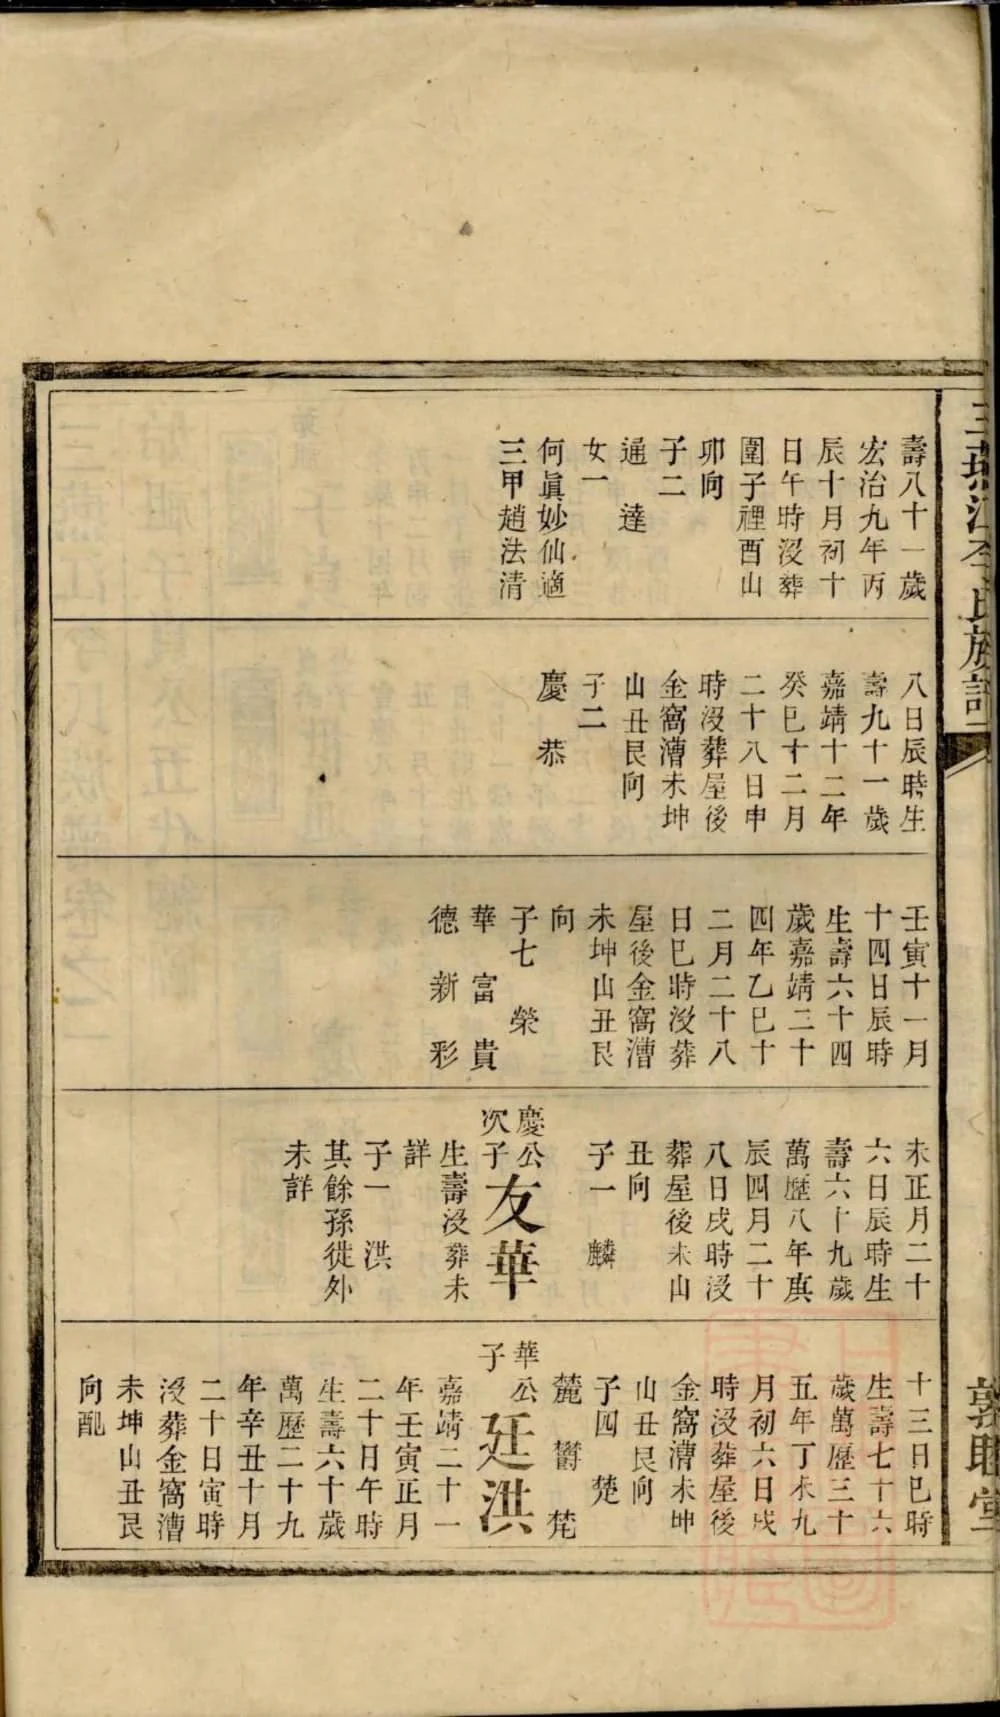 壽八十一歲
宏治九年丙
辰十月初十
日午時沒葬
圍子裡酉山
卯向
子二
通 達
女一
何眞妙仙適
三甲趙法清
八日辰時生
壽九十一歲
嘉靖十二年
癸巳十二月
二十八日申
時沒葬屋後
金窩漕未坤
山丑艮向
子二
慶 恭
壬寅十一月
十四日辰時
生壽六十四
歲嘉靖二十
四年乙巳十
二月二十八
日巳時沒葬
屋後金窩漕
未坤山丑艮
向
子七 榮
華 富 貴
德 新 彩
未正月二十
六日辰時生
壽六十九歲
萬歷八年庚
辰四月二十
八日戌時沒
葬屋後未山
丑向
子一 麟
慶公
次子
友華
生壽沒葬未
詳
子一 洪
其餘孫徙外
未詳
十三日巳時
生壽七十六
歲萬歷三十
五年丁未九
月初六日戌
時沒葬屋後
金窩漕未坤
山丑艮向
子四 楚
麓 鬱 梵
華公
子
廷洪
嘉靖二十一
年壬寅正月
二十日午時
生壽六十歲
萬歷二十九
年辛丑十月
二十日寅時
沒葬金窩漕
未坤山丑艮
向配
敦睦堂